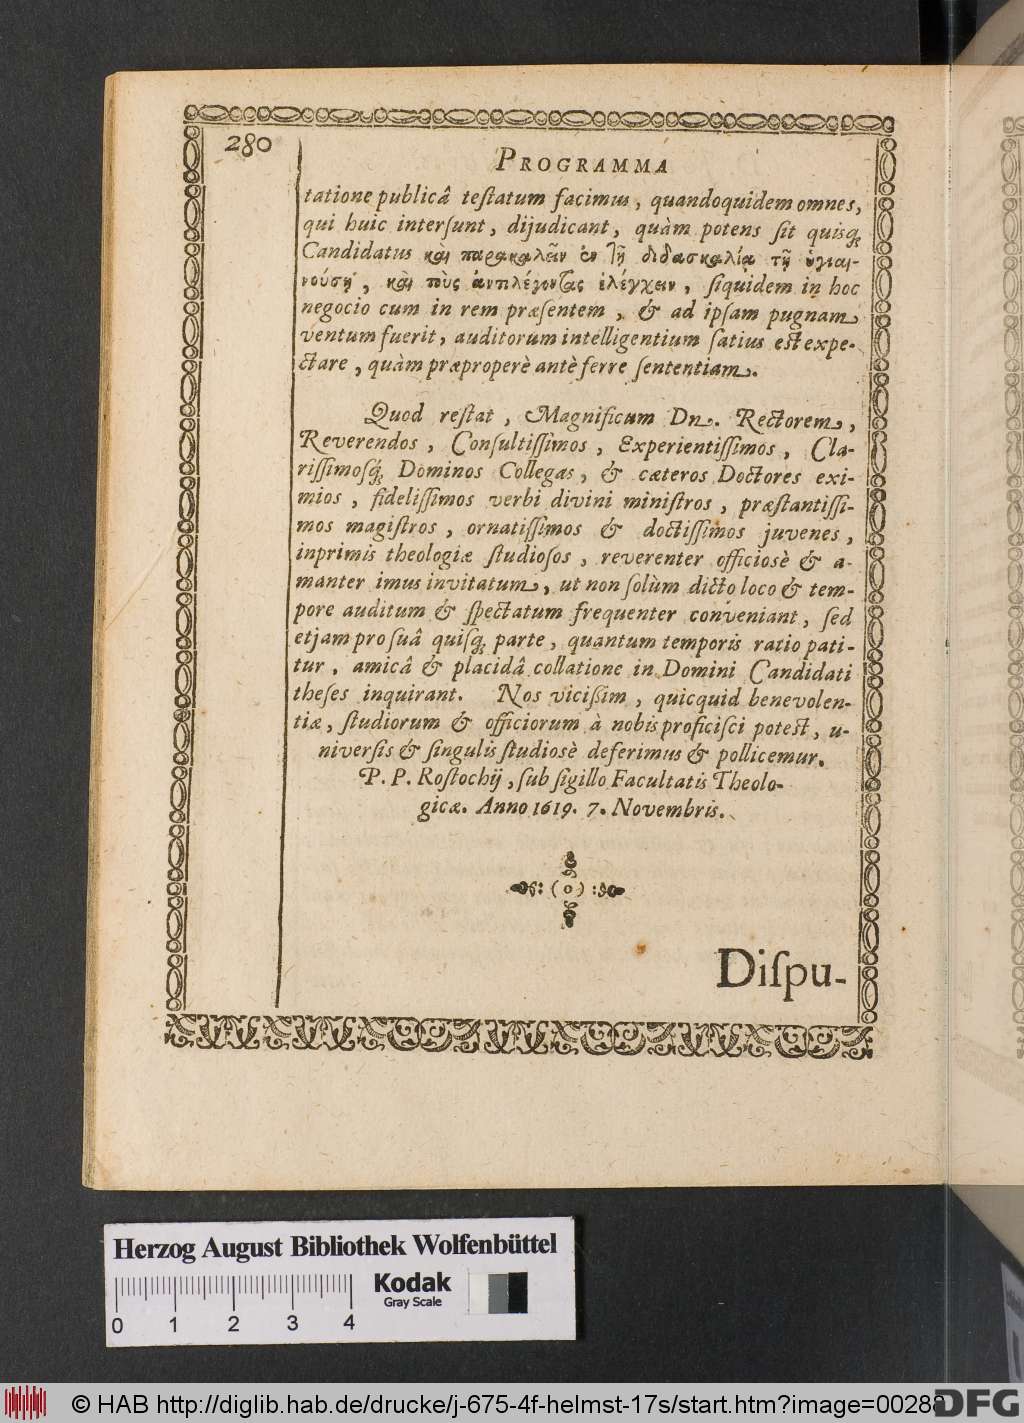 280
PROGRAMMA
tatione publicâ teſtatum facimus, quandoquidem omnes,
qui huic interſunt, dijudicant, quàm potens ſit quisq́;
Candidatus καὶ παρακαλεῖν ἐν τῇ διδασκαλίᾳ τῇ ὑγιαι-
νούσῃ, καὶ τοὺς ἀντιλέγοντας ἐλέγχειν, ſiquidem in hoc
negocio cum in rem præſentem, & ad ipſam pugnam
ventum fuerit, auditorum intelligentium ſatius eſt expe-
ctare, quàm præproperè antè ferre ſententiam.
Quod reſtat, Magnificum Dn. Rectorem,
Reverendos, Conſultiſſimos, Experientiſſimos, Cla-
riſſimoſq́; Dominos Collegas, & cæteros Doctores exi-
mios, fideliſſimos verbi divini miniſtros, præſtantiſſi-
mos magiſtros, ornatiſſimos & doctiſſimos juvenes,
inprimis theologiæ ſtudioſos, reverenter officiosè & a-
manter imus invitatum, ut non ſolùm dicto loco & tem-
pore auditum & ſpectatum frequenter conveniant, ſed
etjam pro ſuâ quiſq́; parte, quantum temporis ratio pati-
tur, amicâ & placidâ collatione in Domini Candidati
theſes inquirant. Nos vicißim, quicquid benevolen-
tiæ, ſtudiorum & officiorum à nobis proficiſci poteſt, u-
niverſis & ſingulis ſtudiosè deferimus & pollicemur.
P. P. Roſtochij, ſub ſigillo Facultatis Theolo-
gicæ. Anno 1619. 7. Novembris.
:(o):
Diſpu-
Herzog August Bibliothek Wolfenbüttel
Kodak
Gray Scale
0 1 2 3 4
© HAB http://diglib.hab.de/drucke/j-675-4f-helmst-17s/start.htm?image=00288
DFG